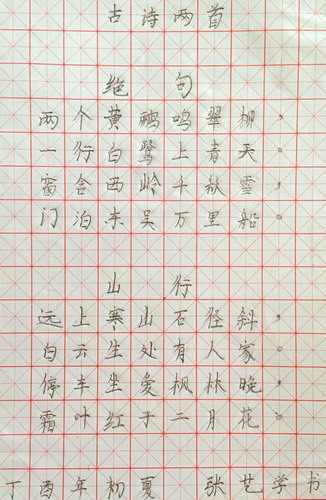 古诗两首
绝句
两个黄鹂鸣翠柳，
一行白鹭上青天。
窗含西岭千秋雪，
门泊东吴万里船。
山行
远上寒山石径斜，
白云生处有人家。
停车坐爱枫林晚，
霜叶红于二月花。
丁酉年初夏 张艺学书